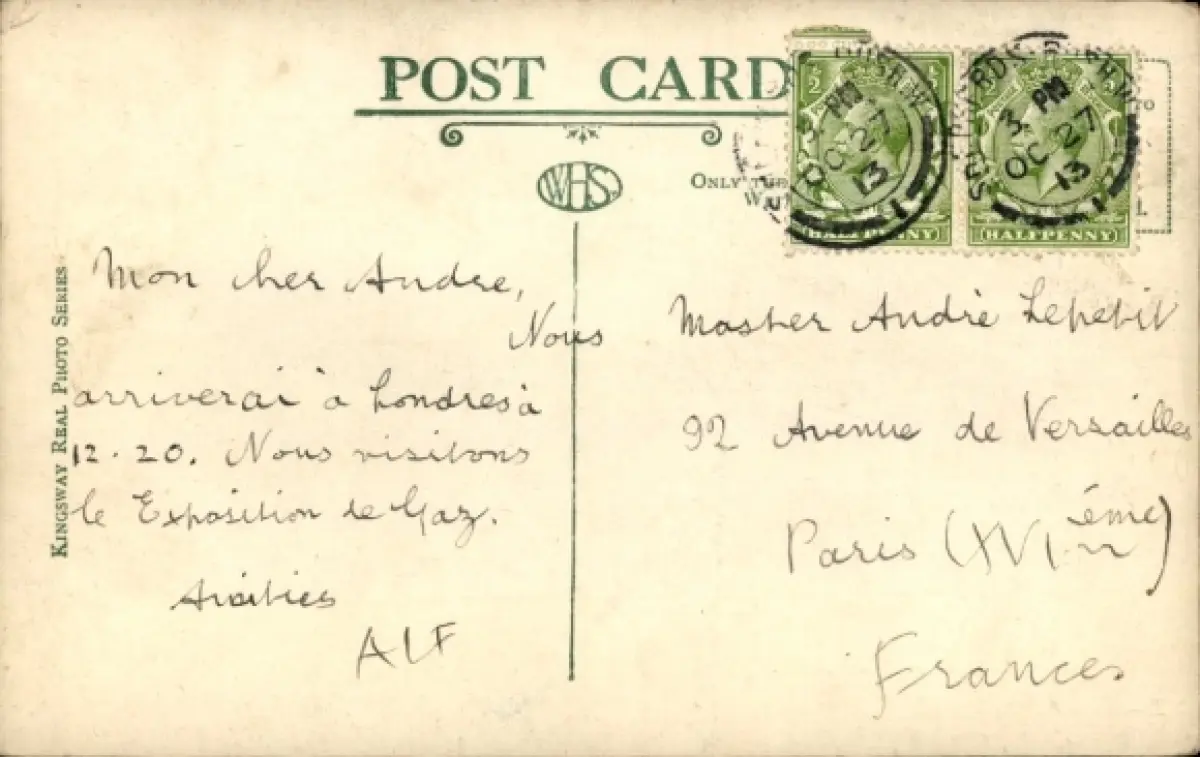 POST CARD
WHS
ONLY THE
KINGSWAY REAL PHOTO SERIES
½
HALFPENNY
HALFPENNY
3 PM
OC 27
13
1
3 PM
OC 27
13
1
Mon cher Andre,
Nous
arriverai à Londres à
12.20. Nous visitons
le Exposition de Gaz.
ALF
Master Andrè Lepetit
92 Avenue de Versailles
Paris (XVI ème)
Frances